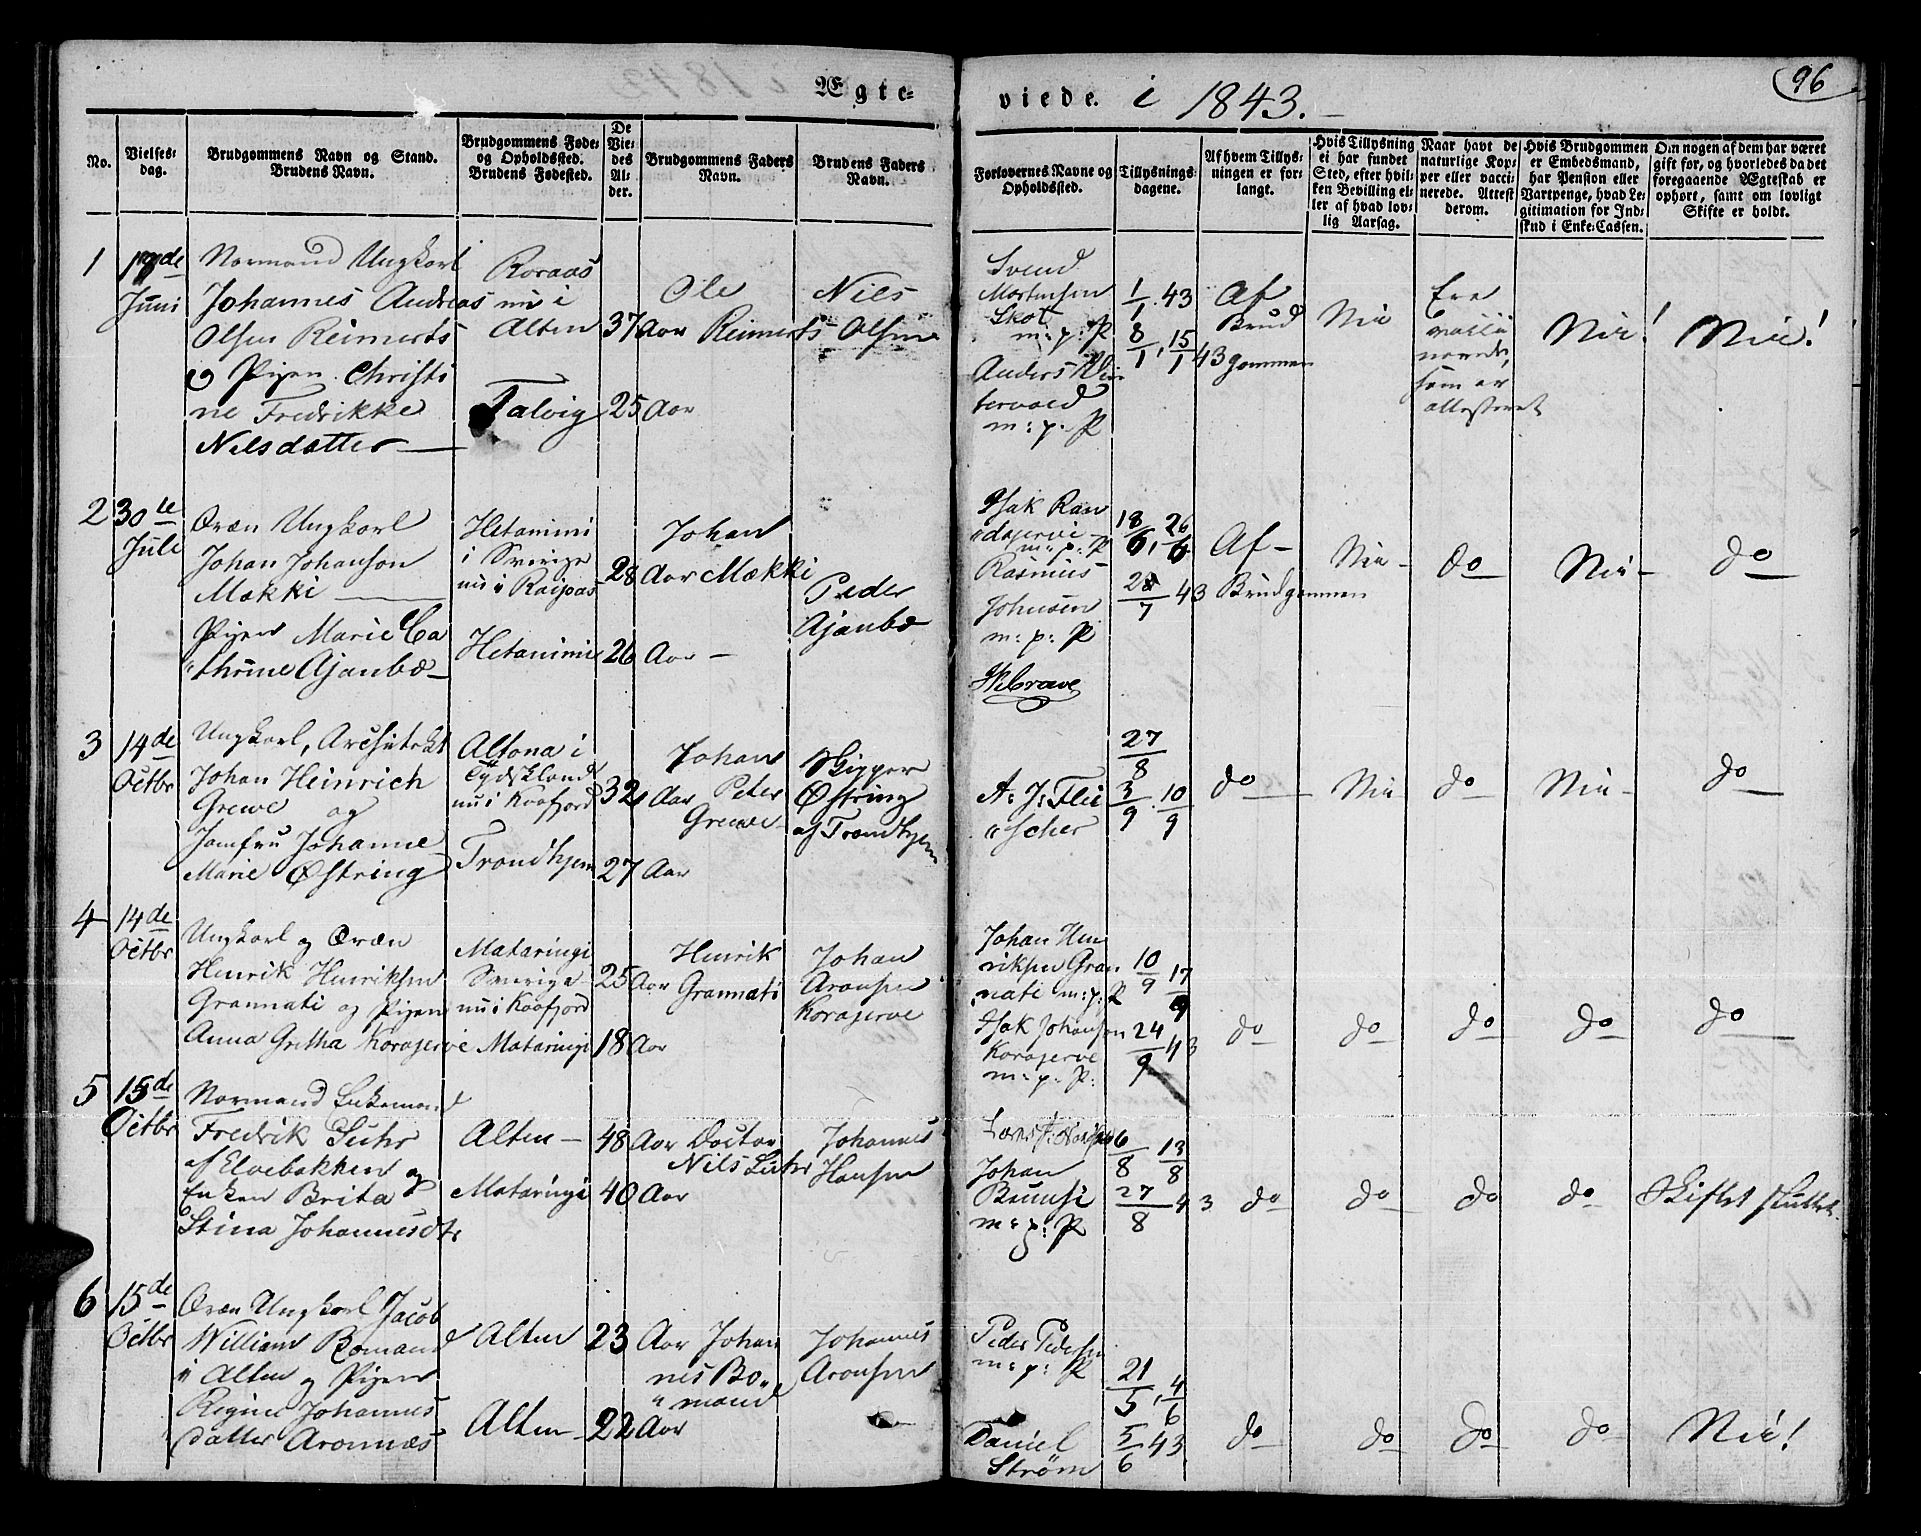 96
Ægte-
viede. i 1843.
No.
Vielses-
dag.
Brudgommens Navn og Stand.
Brudens Navn.
Brudgommens Føde-
og Opholdssted.
Brudens Fødested.
De
Vie-
des
Al-
der.
Brudgommens Faders
Navn.
Brudens Faders
Navn.
Forlovernes Navne og
Opholdssted.
Tillysnings-
dagene.
Af hvem Tillys-
ningen er for-
langt.
Hvis Tillysning
ei har fundet
Sted, efter hvil-
ken Bevilling el-
ler af hvad lov-
lig Aarsag.
Naar havt de
naturlige Kop-
per eller vacci-
nerede. Attest
derom.
Hvis Brudgommen
er Embedsmand,
har Pension eller
Vartpenge, hvad Le-
gitimation for Ind-
skud i Enke-Cassen.
Om nogen af dem har været
gift før, og hvorledes da det
foregaaende Ægteskab er
ophørt, samt om lovligt
Skifte er holdt.
1
Juni
Normand Ungkarl
Johannes Andreas
Olsen Reimerts
og Pigen Christi
ne Fredrikke
Nilsdatter
Roraas
nu i
Alten
Talvig
37 Aar
25 Aar
Ole
Reimerts
Nils
Olsen
Svend
Mortensen
Skot
m: p: P
Anders
m: p. P
1/1. 43
8/1, 15/1 43
Af
Brud
gommen
Nei
Ere
vacci
nerede,
som er
attesteret
Nei!
Nei!
2
30te
Juli
Qvæn Ungkarl
Johan Johanson
Mækki
Pigen Marie Ca
"thrine Ajanbæ
Hetanimi
i Sverige
nu i Raipas
Hetanimi
28 Aar
26 Aar
Johan
Mækki
Peder
Ajanbæ
Isak Ran
m: p: P
Rasmus
Johnsen
m: p: P
18/6, 26/6
43
Af
Brudgommen
Nei
do
Nei
do
3
14de
Octbr
Ungkarl, Architekt
Johan Heinrich
Grewe og
Jomfru Johanne
Marie Østring
Altona i
Tydskland
nu i Kaafjord
Trondhjem
32 Aar
27 Aar
Johan
Peter
Grewe
Skipper
Østring
af Trondhjem
A: J: Flei
"scher
27/8
3/9. 10/9
do
Nei
do
Nei
do
4
14de
Octbr
Ungkarl og Qvæn
Henrik Henriksen
Grannati og Pigen
Anna Gretha Korajerve
Mataringi
Sverige
nu i Kaafjord
Mataringi
25 Aar
18 Aar
Henrik
Grannati
Johan
Aronsen
Korajerve
Johan Hen
riksen Gran
nati m: p: P
Isak Johansen
Korajerve
m: p. P:
10/9 17/9
24/9 43
do
do
do
do
do
5
15de
Octbr
Normand Enkemand
Fredrik Suhr
af Elvebakken og
Enken Brita
Stina Johannesdtr
Alten
Mataringi
48 Aar
40 Aar
Doctor
Nils Suhr
Johannes
Hansen
Johan
m: p: P
6/8 13/8
27/8 43
do
do
do
do
Skiftet sluttet.
6
15de
Octbr
Qvæn Ungkarl Jacob
William Bomand
i Alten og Pigen
Regine Johannes
datter Aronnæs
Alten
Alten
23 Aar
22 Aar
Johan
nes Bo"
"mand
Johannes
Aronsen
Peder Pedersen
m: p: P
Daniel
Strøm
21/5, 4/6
5/6 43
do
do
do
do
Nei!